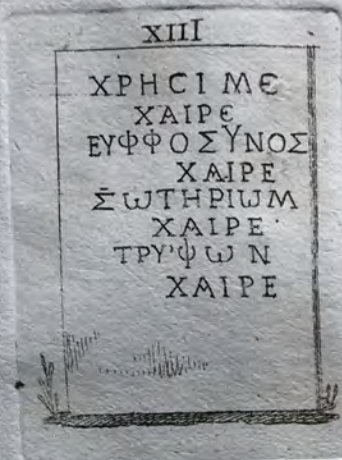 XIII
ΧΡΗCΙ ΜЄ
ΧΑΙΡЄ
ΕΥΦΦΟΣΥΝΟΣ
ΧΑΙΡΕ
ΣωΤΗΡΙωΜ
ΧΑΙΡΕ
ΤΡΥ'ψω Ν
ΧΑΙΡΕ